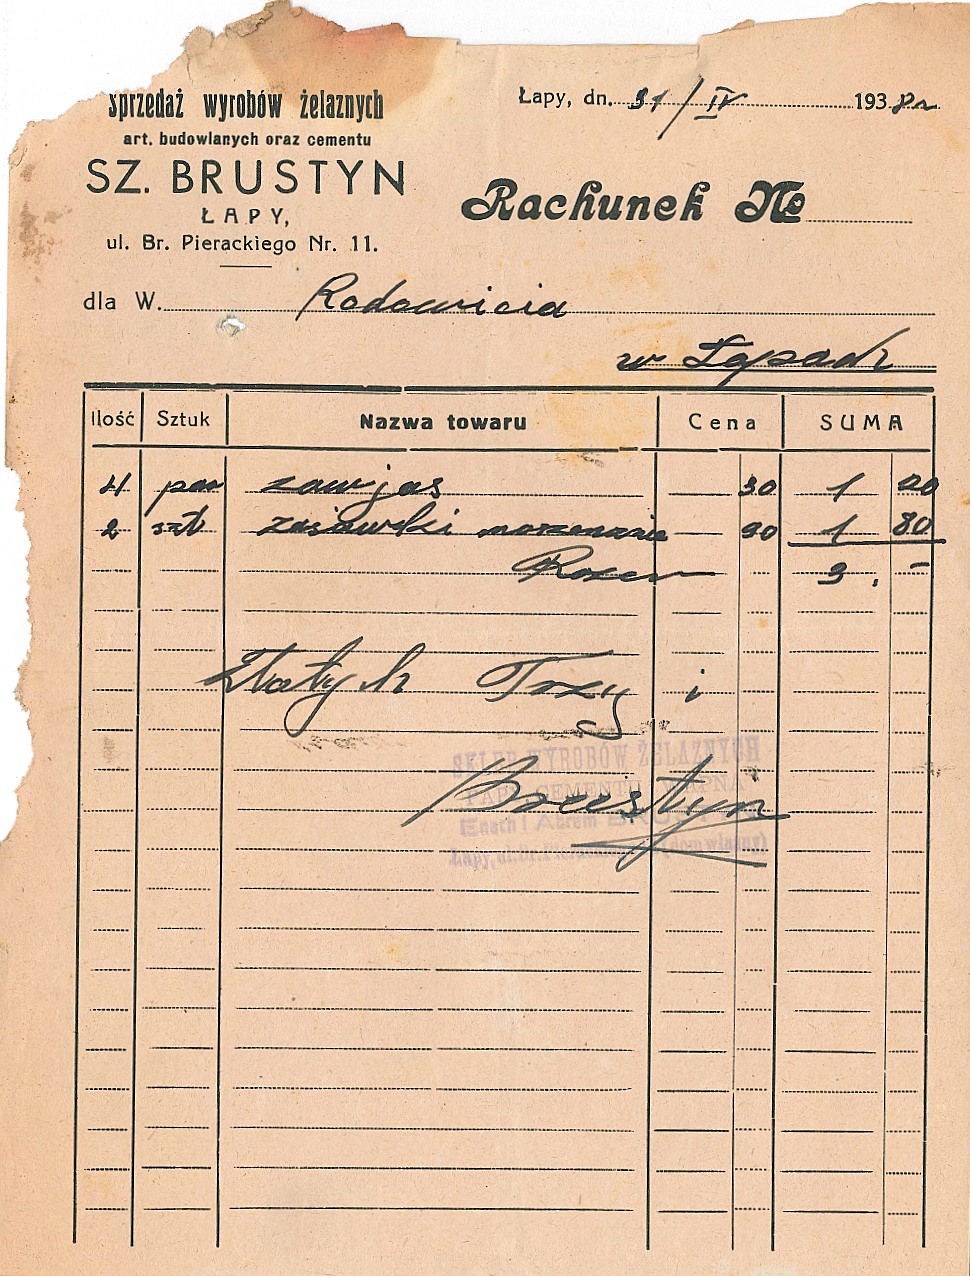 Sprzedaż wyrobów żelaznych
art. budowlanych oraz cementu
SZ. BRUSTYN
ŁAPY,
ul. Br. Pierackiego Nr. 11.
Łapy, dn. 31/IV 1938 r
Rachunek №
dla W. Rodowicia
w Łapach
Ilość Sztuk Nazwa towaru Cena SUMA
4 par zawjas 30 1 20
2 szt zasuwki 90 1 80
Razem 3.-
Złotych Trzy i
SKLEP WYROBÓW ŻELAZNYCH
CEMENTU WAPNA
Brustyn
Łapy, ul. Br. Pierackiego (dom własny)